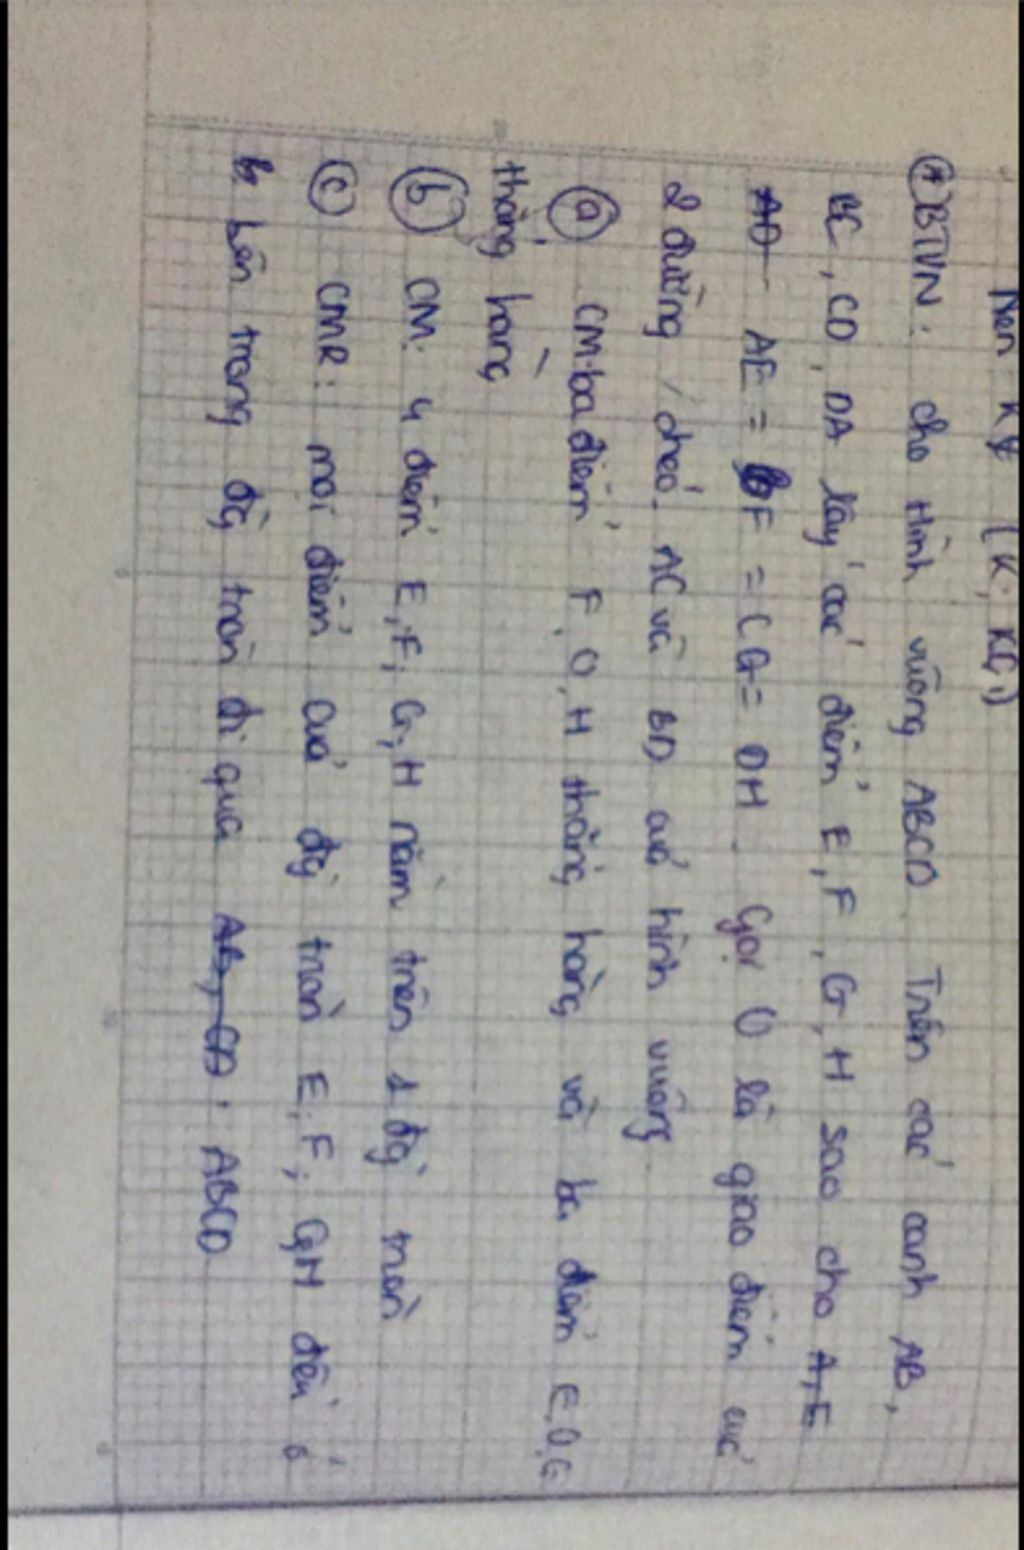 (K; KG)
* BTVN: cho Hình vuông ABCD. Trên các cạnh AB,
BC, CD, DA lấy các điểm E, F, G, H sao cho A,E
AD AE = BF = CG = DH. Gọi O là giao điểm của
2 đường chéo AC và BD của hình vuông
a CM: ba điểm F, O, H thẳng hàng và ba điểm E,O,G
thẳng hàng
b CM: 4 điểm E, F, G, H nằm trên 1 đg tròn
c CMR: mọi điểm của đg tròn E, F, G, H đều ở
bên trong đg tròn đi qua AB, CD. ABCD